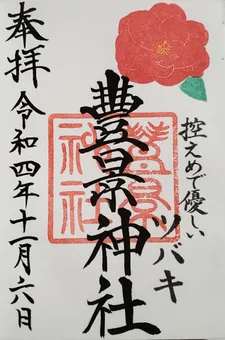 控えめで優しい
ツバキ
豊景神社
豊景神社
奉拝 令和四年十一月六日